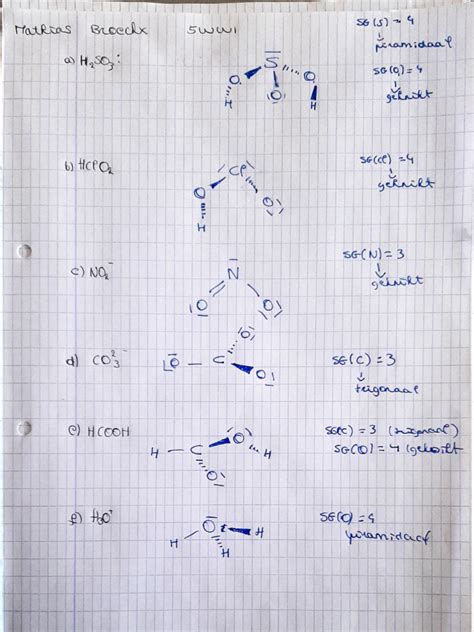 Mathias Broeckx 5WW1
SG(S) = 4
↓
piramidaal
a) H₂SO₃:
SG(O) = 4
↓
geknikt
S
O O
H O H
b) HClO₂
SG(Cl) = 4
↓
geknikt
Cl
O O
H
c) NO₂⁻
SG(N) = 3
↓
geknikt
N
O O
d) CO₃²⁻
SG(C) = 3
↓
trigonaal
O
O – C
O
e) HCOOH
SG(C) = 3 (trigonaal)
SG(O) = 4 (geknikt)
H – C O H
O
f) H₃O⁺
SG(O) = 4
piramidaal
O H
H H